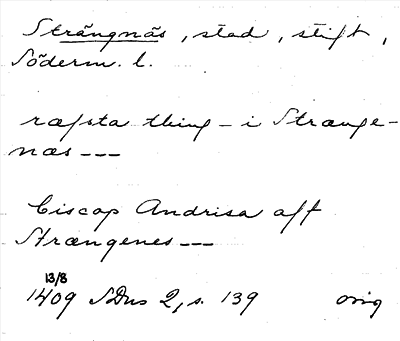 Strängnäs, stad, stift,
Söderm. l.
ræfsta thing - i Strænge-
næs ---
Biscop Andrisa aff
Strængenes ---
13/8
1409 SDns 2, s. 139 orig